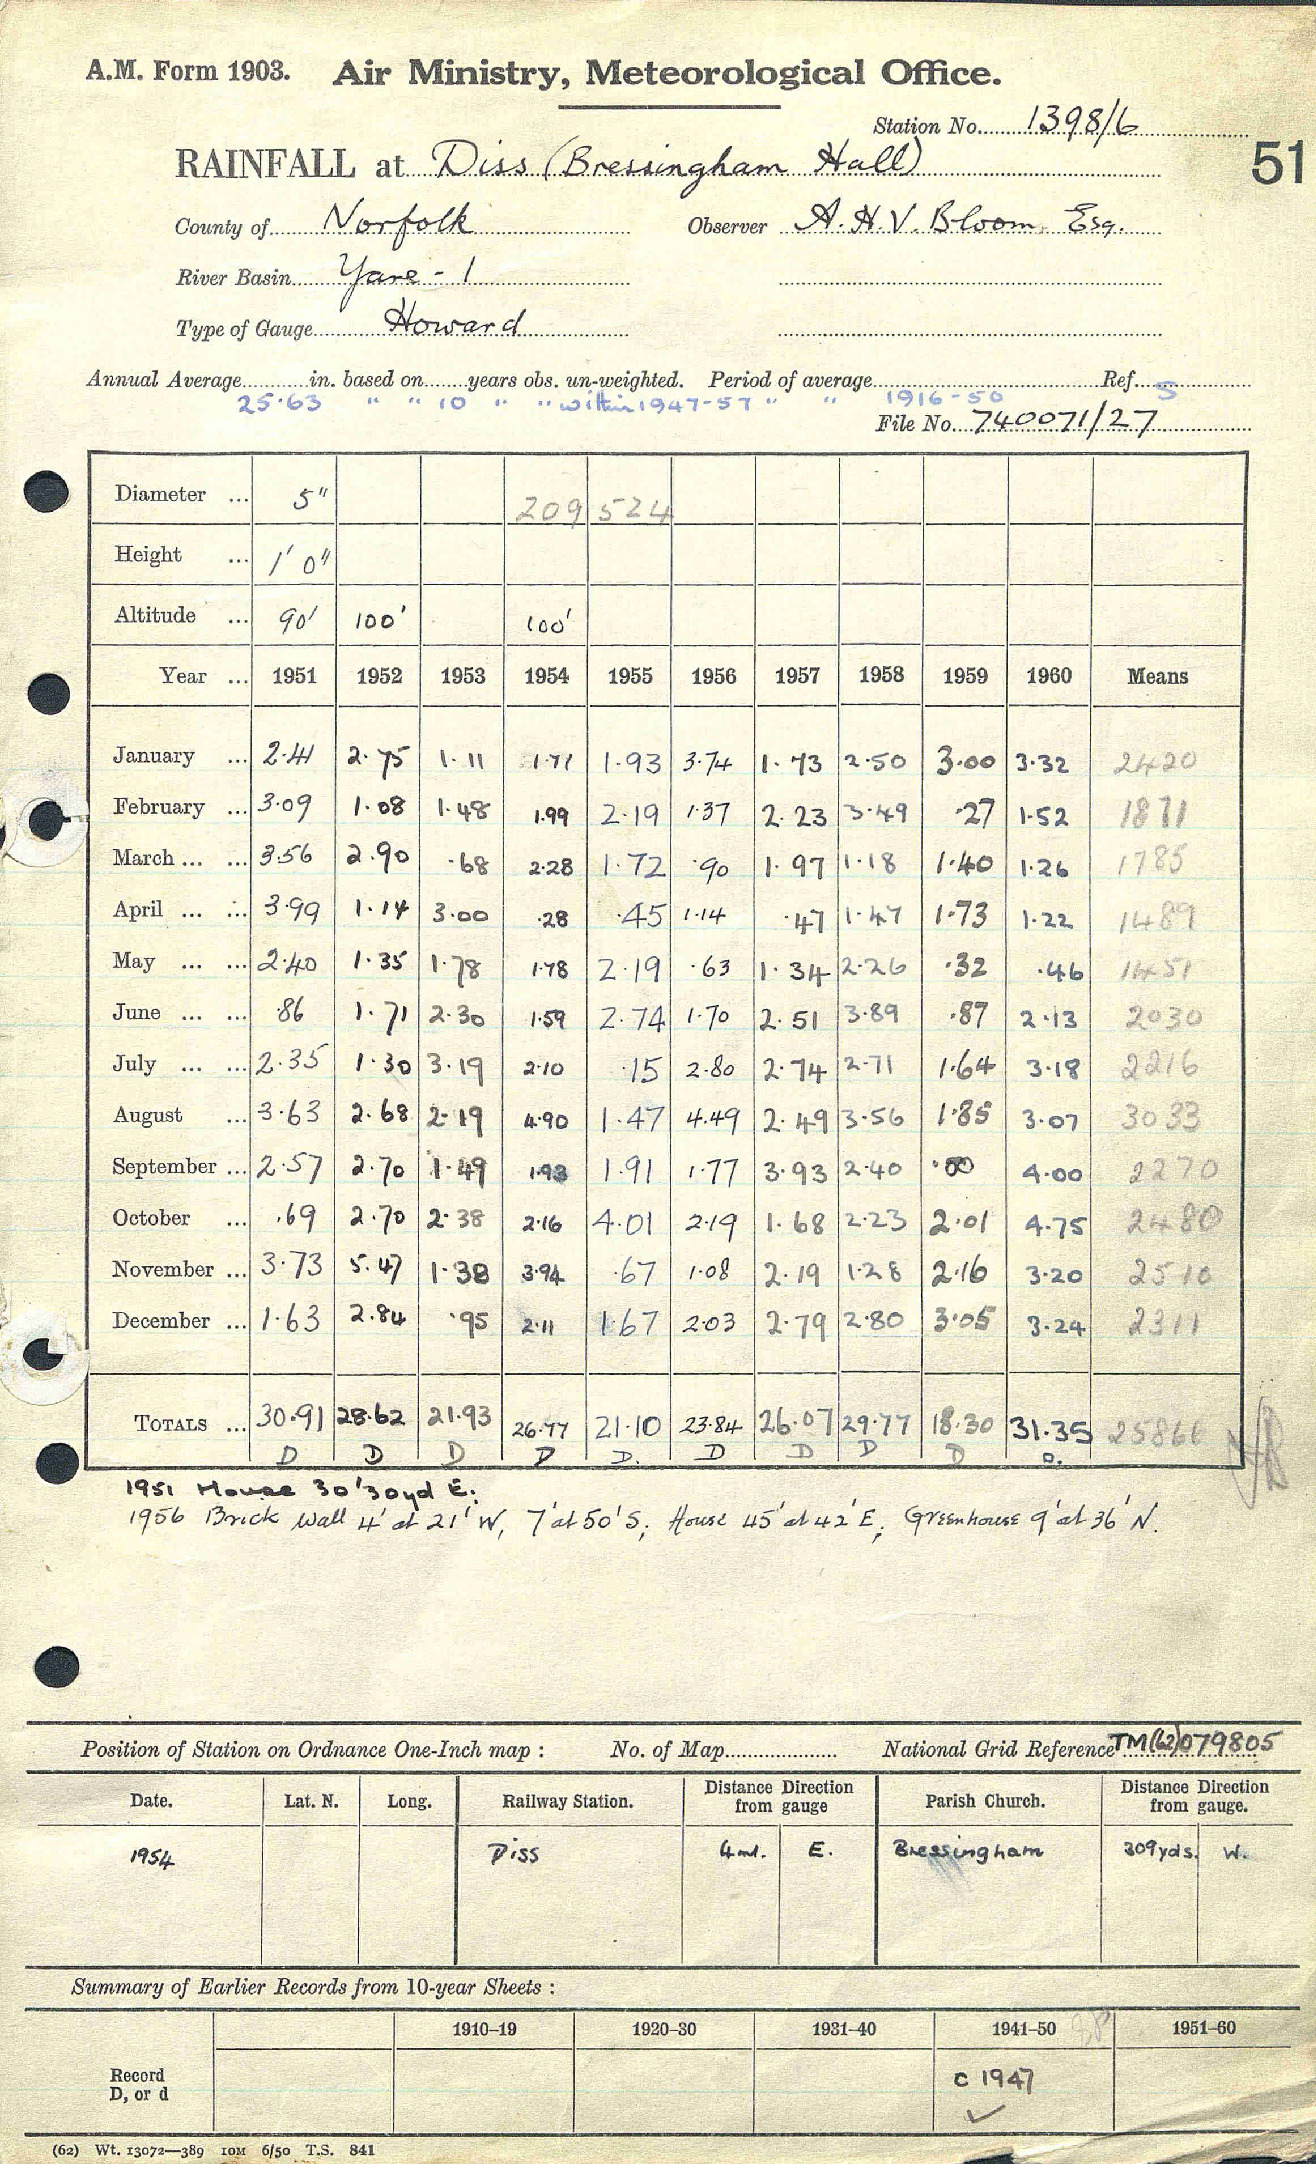 A.M. Form 1903. Air Ministry, Meteorological Office.
Station No. 1398/6
51
RAINFALL at Diss (Bressingham Hall)
County of Norfolk Observer A. H. V. Bloom, Esq.
River Basin Yare - 1
Type of Gauge Howard
Annual Average in. based on years obs. un-weighted. Period of average Ref. S
25.63 " " 10 " " within 1947-57 " " 1916-50
File No. 740071/27
Diameter ... 5" 209524
Height ... 1' 0"
Altitude ... 90' 100' 100'
Year ... 1951 1952 1953 1954 1955 1956 1957 1958 1959 1960 Means
January ... 2.41 2.75 1.11 1.71 1.93 3.74 1.73 2.50 3.00 3.32 2420
February ... 3.09 1.08 1.48 1.99 2.19 1.37 2.23 3.49 .27 1.52 1871
March ... ... 3.56 2.90 .68 2.28 1.72 .90 1.97 1.18 1.40 1.26 1785
April ... ... 3.99 1.14 3.00 .28 .45 1.14 .47 1.47 1.73 1.22 1489
May ... ... 2.40 1.35 1.78 1.78 2.19 .63 1.34 2.26 .32 .46 1451
June ... ... .86 1.71 2.30 1.59 2.74 1.70 2.51 3.89 .87 2.13 2030
July ... ... 2.35 1.30 3.19 2.10 .15 2.80 2.74 2.71 1.64 3.18 2216
August ... 3.63 2.68 2.19 4.90 1.47 4.49 2.49 3.56 1.85 3.07 3033
September ... 2.57 2.70 1.49 1.93 1.91 1.77 3.93 2.40 .00 4.00 2270
October ... .69 2.70 2.38 2.16 4.01 2.19 1.68 2.23 2.01 4.75 2480
November ... 3.73 5.47 1.38 3.94 .67 1.08 2.19 1.28 2.16 3.20 2510
December ... 1.63 2.84 .95 2.11 1.67 2.03 2.79 2.80 3.05 3.24 2311
TOTALS ... 30.91 28.62 21.93 26.77 21.10 23.84 26.07 29.77 18.30 31.35 25866
D D D D D. D D D D D.
1951 House 30' 30yd E.
1956 Brick wall 4' at 21' W, 7' at 50' S; House 45' at 42' E; Greenhouse 9' at 36' N.
Position of Station on Ordnance One-Inch map : No. of Map National Grid Reference TM(62)079805
Date. Lat. N. Long. Railway Station. Distance Direction from gauge Parish Church. Distance Direction from gauge.
1954 Diss 4ml. E. Bressingham 309yds. W.
Summary of Earlier Records from 10-year Sheets :
1910–19 1920–30 1931–40 1941–50 1951–60
Record
D, or d
C 1947
(62) Wt. 13072—389 10M 6/50 T.S. 841